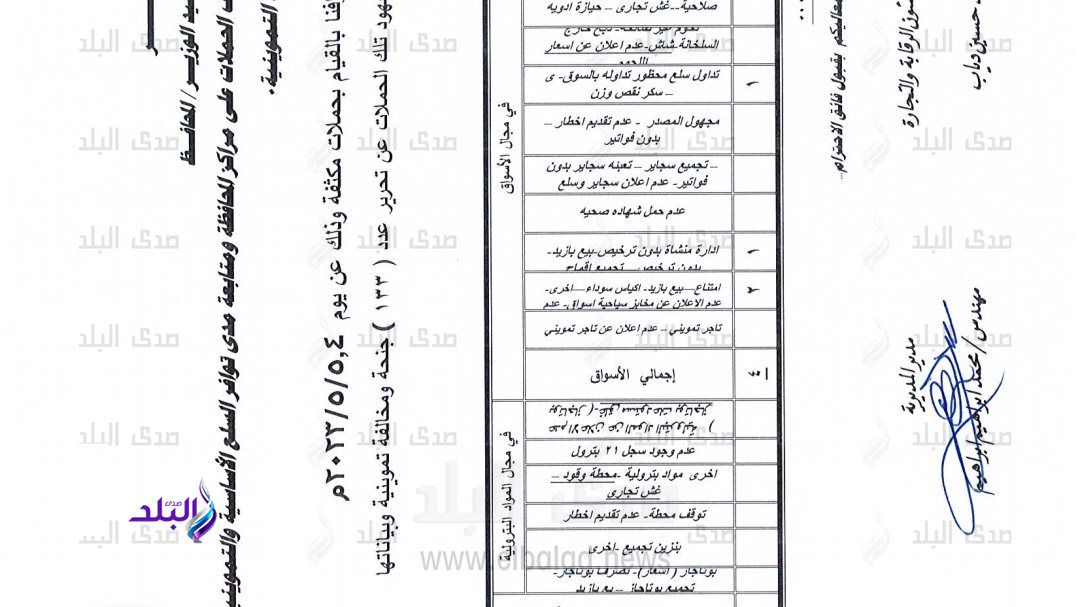 السيد الوزير / المحافظ
الحملات على مراكز المحافظة ومتابعة مدى توافر السلع الأساسية والتموينية
التموينية.
بالقيام بحملات مكثفة وذلك عن يوم ٢٠٢٣/٥/٥,٤م
تلك الحملات عن تحرير عدد ( ١٣٣ ) جنحة ومخالفة تموينية وبياناتها
في مجال الأسواق
صلاحية--غش تجارى – حيازة ادويه
السلخانة-شاش-عدم اعلان عن اسعار
تداول سلع محظور تداوله بالسوق- ى
– سكر نقص وزن
١
مجهول المصدر - عدم تقديم اخطار –
بدون فواتير
– تجميع سجاير – تعبئه سجاير بدون
فواتير- عدم اعلان سجاير وسلع
عدم حمل شهاده صحيه
ادارة منشاة بدون ترخيص-بيع بازيد-
بدون ترخيص – تجميع اقماح
١
امتناع—بيع بازيد- اكياس سوداء—اخرى-
عدم الاعلان عن مخابز سياحية اسواق- عدم
٢
تاجر تمويني – عدم اعلان عن تاجر تمويني
إجمالي الأسواق
٤
في مجال المواد البترولية
عدم وجود سجل ٢١ بترول
اخرى مواد بترولية -محطة وقود –
غش تجارى
توقف محطة- عدم تقديم اخطار
بنزين تجميع -اخرى
بوتاجاز ( اسعار )- تصرف بوتاجاز-
تجميع بوتاجاز – بيع بازيد
بقبول فائق الاحترام...
الرقابة والتجارة
حسين دياب
مدير المديرية
مهندس/ محمد ابراهيم ابراهيم
صدى البلد
www.elbalad.news